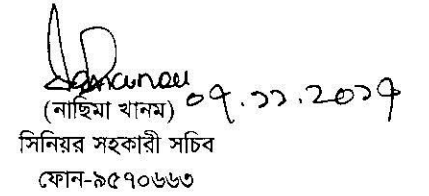 ০৭.১১.২০১৭
(নাছিমা খানম)
সিনিয়র সহকারী সচিব
ফোন-৯৫৭০৬৬৩